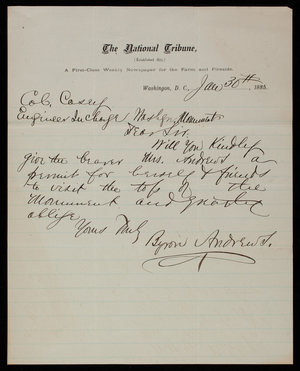 The National Tribune,
(Established 1877.)
A First-Class Weekly Newspaper for the Farm and Fireside.
Washington, D. C., Jan 30th, 1885.
Col. Casey
Engineer In Charge Washgn Monument
Dear Sir
Will You Kindly
give the bearer Mrs. Andrews a
permit for herself & friends
to visit the top of the
Monument and greatly
oblige
Yours Truly
Byron Andrews.